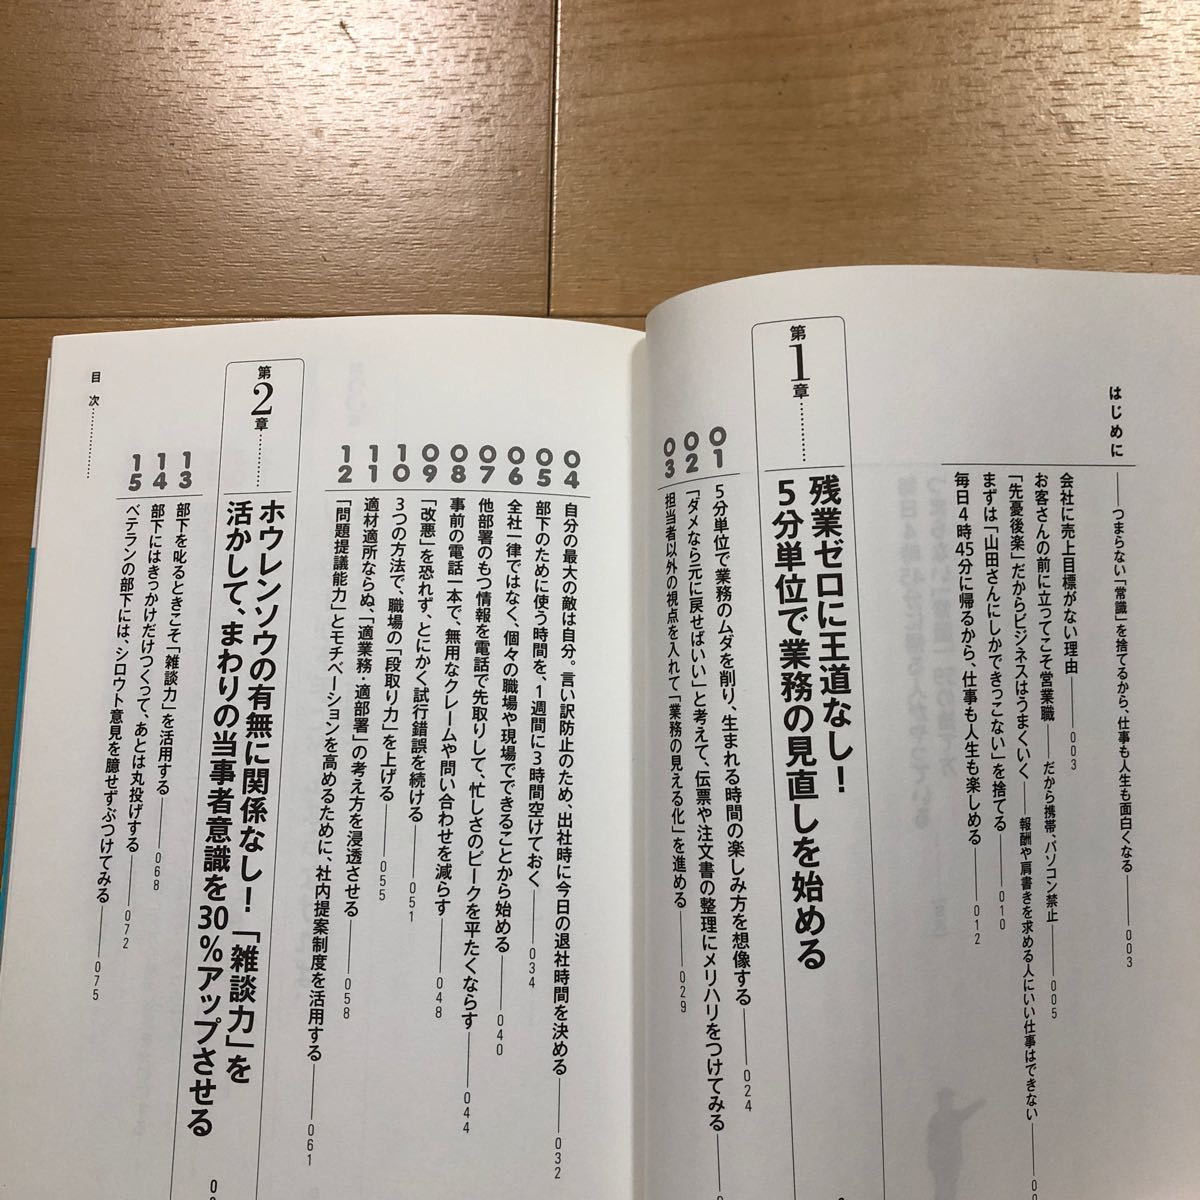 はじめに——つまらない「常識」を捨てるから、仕事も人生も面白くなる——003
会社に売上目標がない理由——003
お客さんの前に立ってこそ営業職——だから携帯、パソコン禁止——005
「先憂後楽」だからビジネスはうまくいく——報酬や肩書きを求める人にいい仕事はできない——
まずは「山田さんにしかできっこない」を捨てる——010
毎日4時45分に帰るから、仕事も人生も楽しめる——012
第1章……残業ゼロに王道なし！
5分単位で業務の見直しを始める
01 5分単位で業務のムダを削り、生まれる時間の楽しみ方を想像する——024
02 「ダメなら元に戻せばいい」と考えて、伝票や注文書の整理にメリハリをつけてみる——
03 担当者以外の視点を入れて「業務の見える化」を進める——029
04 自分の最大の敵は自分。言い訳防止のため、出社時に今日の退社時間を決める——032
05 部下のために使う時間を、1週間に3時間空けておく——034
06 全社一律ではなく、個々の職場や現場でできることから始める——040
07 他部署のもつ情報を電話で先取りして、忙しさのピークを平たくならす——044
08 事前の電話一本で、無用なクレームや問い合わせを減らす——048
09 「改悪」を恐れず、とにかく試行錯誤を続ける——051
10 3つの方法で、職場の「段取り力」を上げる——055
11 適材適所ならぬ、「適業務・適部署」の考え方を浸透させる——058
12 「問題提議能力」とモチベーションを高めるために、社内提案制度を活用する——061
第2章……ホウレンソウの有無に関係なし！「雑談力」を
活かして、まわりの当事者意識を30％アップさせる
13 部下を叱るときこそ「雑談力」を活用する——068
14 部下にはきっかけだけつくって、あとは丸投げする——072
15 ベテランの部下には、シロウト意見を臆せずぶつけてみる——075
目 次……